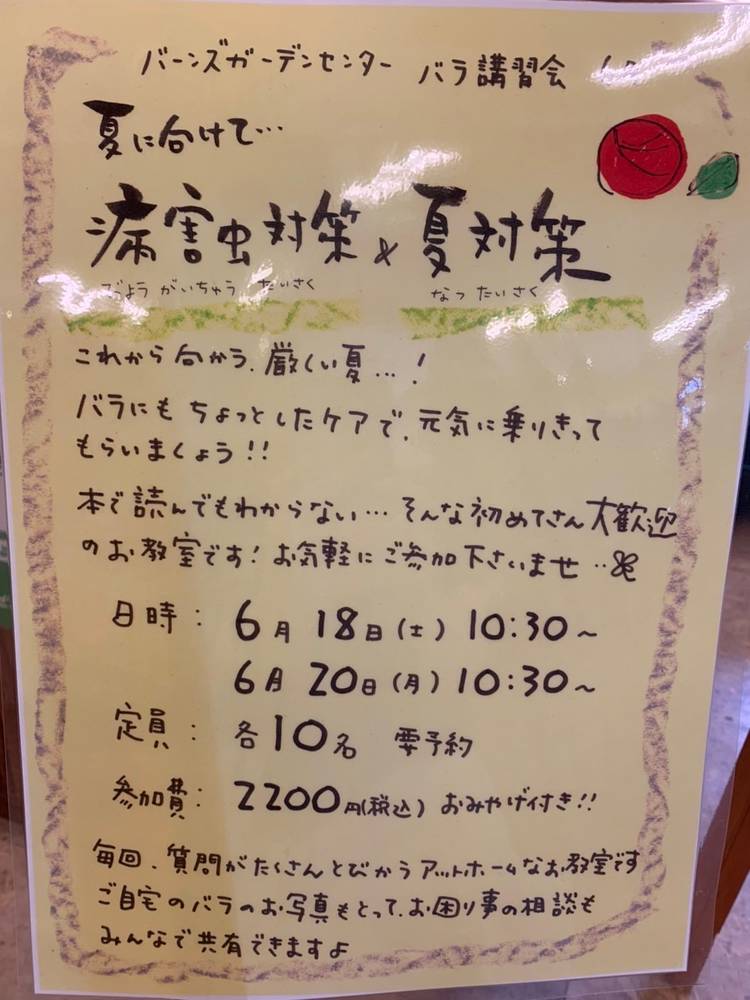 バーンズガーデンセンター バラ講習会
夏に向けて…
病害虫対策 & 夏対策
びょう がいちゅう たいさく なつ たいさく
これから向かう、厳しい夏…!
バラにもちょっとしたケアで、元気に乗りきって
もらいましょう!!
本で読んでもわからない… そんな初めてさん大歓迎
のお教室です! お気軽にご参加下さいませ‥
日時: 6月18日(土) 10:30~
6月20日(月) 10:30~
定員: 各10名 要予約
参加費: 2200円(税込) おみやげ付き!!
毎回、質問がたくさんとびかうアットホームなお教室です
ご自宅のバラのお写真もとって、お困り事の相談も
みんなで共有できますよ